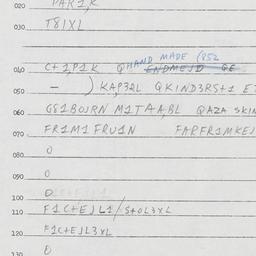 020 PAR1,K
030 T8IXL
HAND MADE (852
040 C+1,P1K QENDMEJD GE
050 - ) KAP32L QKIND3RS+1 E
060 G81BOJRN M1TAABL QAZA SKIN
070 FR1M1 FRU1N FARFR1MKEJ
080 0
090 0
100 0
110 F1C+EJL1/S+OL3XL
120 F1C+EJL3XL
130 0